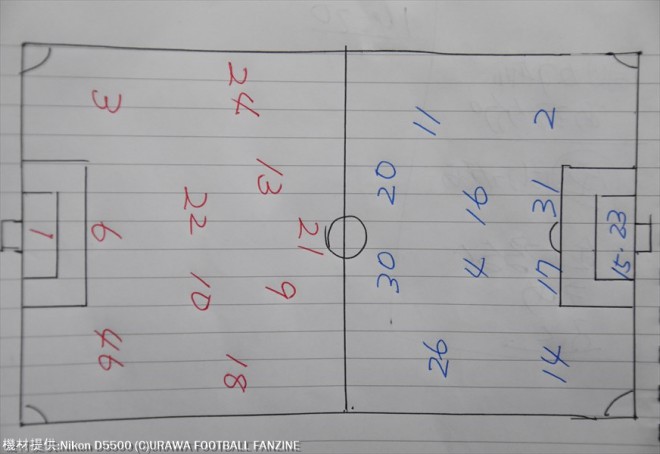 24
3
11
2
13
20
22
16
31
21
1
6
15.23
30
4
17
10
9
46
18
26
14
機材提供:Nikon D5500 (C)URAWA FOOTBALL FANZINE